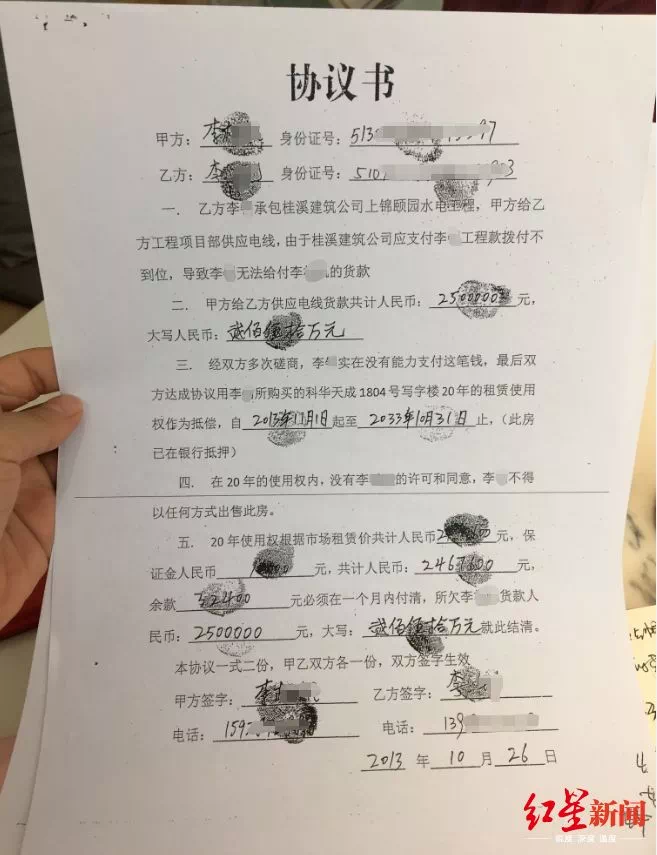 协议书
甲方：李 身份证号：513 97
乙方：李 身份证号：510 903
一． 乙方李 承包桂溪建筑公司上锦颐园水电工程，甲方给乙
方工程项目部供应电线，由于桂溪建筑公司应支付李 工程款拨付不
到位，导致李 无法给付李 的货款
二． 甲方给乙方供应电线货款共计人民币：2500000元，
大写人民币：贰佰 拾万元
三． 经双方多次磋商，李 实在没有能力支付这笔钱，最后双
方达成协议用李 所购买的科华天成1804号写字楼20年的租赁使用
权作为抵偿，自2013年11月1日起至2033年10月31日止，（此房
已在银行抵押）
四． 在20年的使用权内，没有李 的许可和同意，李 不得
以任何方式出售此房。
五． 20年使用权根据市场租赁价共计人民币 元，保
证金人民币 元，共计人民币：2467600元，
余款 32400 元必须在一个月内付清，所欠李 货款人
民币：2500000 元，大写：贰佰 拾万元就此结清。
本协议一式二份，甲乙双方各一份，双方签字生效
甲方签字：李 乙方签字：李
电话：159 电话：139
2013 年 10 月 26 日
红星新闻
锐度 深度 温度